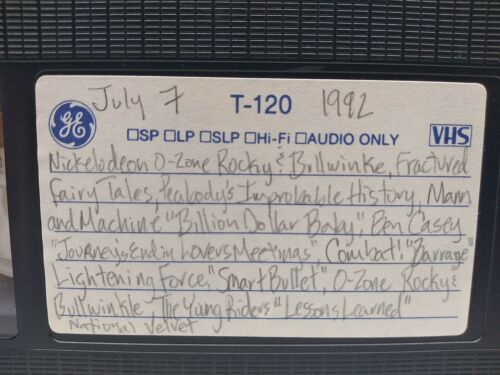 July 7 T-120 1992
GE
☐SP ☐LP ☐SLP ☐Hi-Fi ☐AUDIO ONLY VHS
Nickelodeon O-Zone Rocky & Bullwinke, Fractured
Fairy Tales, Peabody's Improbable History, Mann
and Machine "Billion Dollar Baby", Ben Casey
"Journeys End in Lovers Meetings", Combat! "Barrage"
Lightening Force, "Smart Bullet", O-Zone Rocky &
Bullwinkle, The Yong Riders "Lessons Learned"
National Velvet